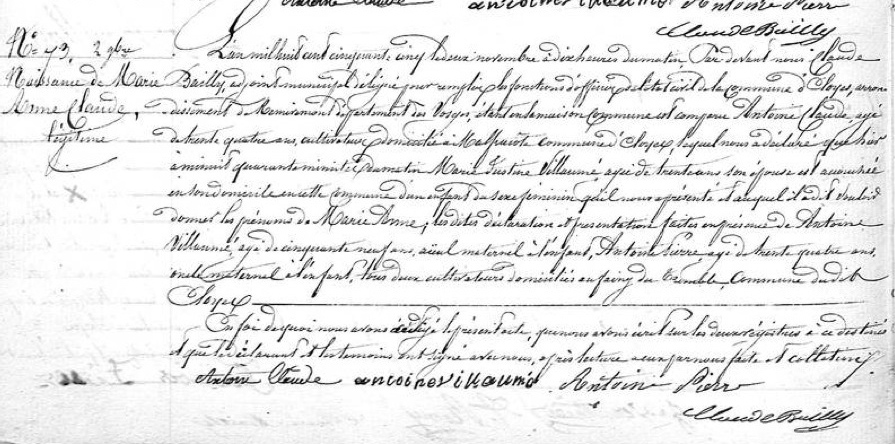 Antoine Claude antoine villaumé Antoine Pierre
Claude Bailly
No 73. 2 9bre
Naissance de Marie
Anne Claude,
légitime
L'an mil huit cent cinquante cinq le deux novembre à dix heures du matin Par devant nous Claude
Bailly, adjoint municipal délégué pour remplir les fonctions d'officier de l'état civil de la commune d'Eloyes, arron
dissement de Remiremont département des Vosges, étant en la maison commune est comparu Antoine Claude, agé
de trente quatre ans, cultivateur, domicilié à commune d'Eloyes, lequel nous a déclaré que hier
à minuit quarante minutes du matin Marie Justine Villaumé, agée de trente ans son épouse est accouchée
en son domicile en cette commune d'un enfant du sexe féminin qu'il nous a présenté et auquel il a dit vouloir
donner les prénoms de Marie Anne; les dites déclaration et présentation faites en présence de Antoine
Villaumé, agé de cinquante neuf ans, aïeul maternel à l'enfant, Antoine Pierre agé de trente quatre ans,
oncle maternel à l'enfant, tous deux cultivateurs domiciliés au faing du Tremble, commune du dit
Eloyes
En foi de quoi nous avons rédigé le présent acte, que nous avons écrit sur les deux registres à ce destinés
et que le déclarant et les témoins ont signé avec nous, après lecture à eux par nous faite et collationné
Antoine Claude antoine villaumé Antoine Pierre
Claude Bailly